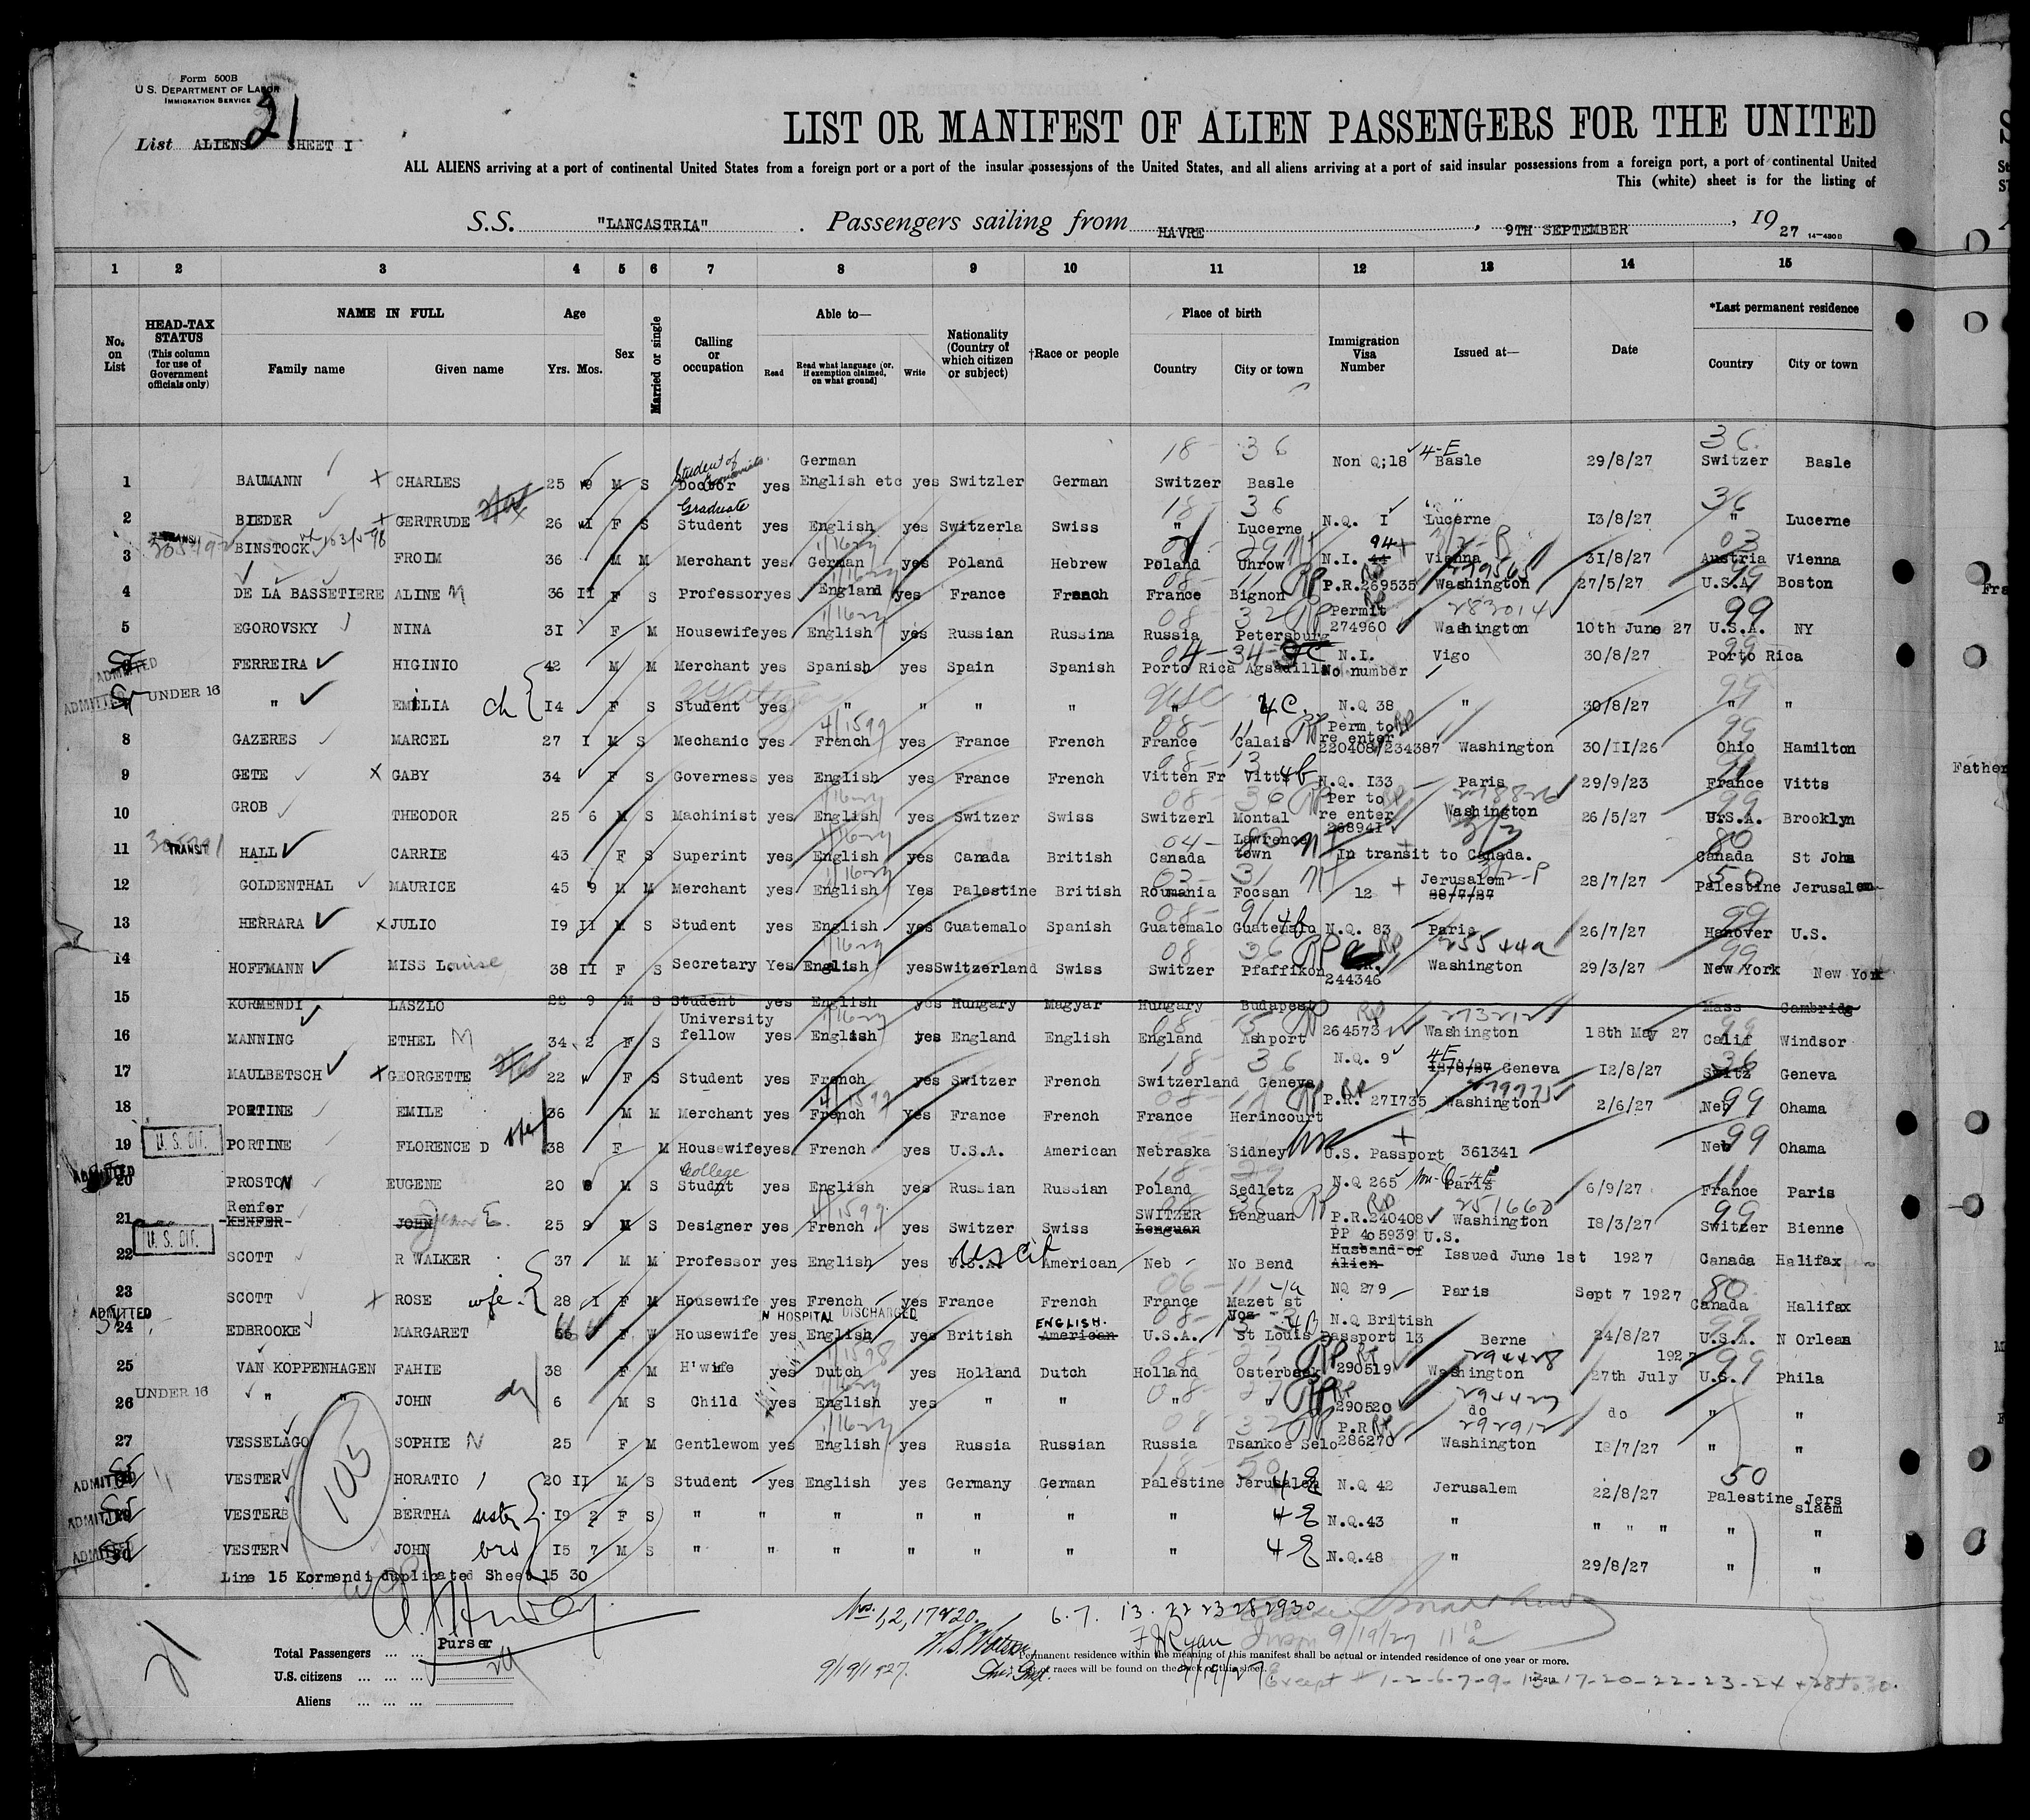 Form 500B
U.S. DEPARTMENT OF LABOR
IMMIGRATION SERVICE
21
List ALIENS SHEET I
LIST OR MANIFEST OF ALIEN PASSENGERS FOR THE UNITED
ALL ALIENS arriving at a port of continental United States from a foreign port or a port of the insular possessions of the United States, and all aliens arriving at a port of said insular possessions from a foreign port, a port of continental United
This (white) sheet is for the listing of
S.S. "LANCASTRIA". Passengers sailing from HAVRE, 9TH SEPTEMBER, 19 27 14-430B
1 2 3 4 5 6 7 8 9 10 11 12 13 14 15
No. on List
HEAD-TAX STATUS (This column for use of Government officials only)
NAME IN FULL Family name Given name
Age Yrs. Mos.
Sex
Married or single
Calling or occupation
Able to— Read Read what language (or, if exemption claimed, on what ground) Write
Nationality (Country of which citizen or subject)
†Race or people
Place of birth Country City or town
Immigration Visa Number
Issued at—
Date
*Last permanent residence Country City or town
18- 36 36
1 BAUMANN CHARLES 25 9 M S Student of Doctor yes German English etc yes Switzler German Switzer Basle Non Q;18 4-E Basle 29/8/27 Switzer Basle
18- 36 36
2 BIEDER GERTRUDE 26 II F S Graduate Student yes English yes Switzerla Swiss " Lucerne N.Q. I Lucerne I3/8/27 " Lucerne
3 TRANSIT BINSTOCK FROIM 36 M M Merchant yes German yes Poland Hebrew Poland Uhrow N.I. 44 94 Vienna 31/8/27 Austria Vienna
4 DE LA BASSETIERE ALINE M 36 II F S Professor yes England yes France French France Bignon P.R.269535 Washington 27/5/27 U.S.A. Boston
5 EGOROVSKY NINA 3I F M Housewife yes English yes Russian Russina Russia Petersburg Permit 274960 283014 Washington 10th June 27 U.S.A. NY
ADMITTED FERREIRA HIGINIO 42 M M Merchant yes Spanish yes Spain Spanish Porto Rica Agsadilla N.I. No number Vigo 30/8/27 Porto Rica
ADMITTED UNDER 16 " EMILIA ch I4 F S Student yes " " " " USC 4C. N.Q 38 " 30/8/27 " "
8 GAZERES MARCEL 27 I M S Mechanic yes French yes France French France Calais Perm to re enter 220408/234387 Washington 30/II/26 Ohio Hamilton
9 GETE GABY 34 F S Governess yes English yes France French Vitten Fr Vitts 4b N.Q. I33 Paris 29/9/23 France Vitts
10 GROB THEODOR 25 6 M S Machinist yes English yes Switzer Swiss Switzerl Montal Per to re enter 268941 Washington 26/5/27 U.S.A. Brooklyn
11 TRANSIT HALL CARRIE 43 F S Superint yes English yes Canada British Canada Lawrence town In transit to Canada. Canada St John
12 GOLDENTHAL MAURICE 45 9 M M Merchant yes English Yes Palestine British Roumania Focsan 12 Jerusalem 28/7/27 28/7/27 Palestine Jerusalem
13 HERRARA JULIO I9 II M S Student yes English yes Guatemalo Spanish Guatemalo Guatemalo 4b N.Q. 83 Paris 26/7/27 Hanover U.S.
14 HOFFMANN MISS Louise 38 II F S Secretary Yes English yes Switzerland Swiss Switzer Pfaffikon 244346 Washington 29/3/27 New York New York
15 KORMENDI LASZLO 22 9 M S Student yes English yes Hungary Magyar Hungary Budapest Mass Cambridg
16 MANNING ETHEL M 34 2 F S University fellow yes English yes England English England Ashport 264573 273212 Washington 18th May 27 Calif Windsor
17 MAULBETSCH GEORGETTE 22 F S Student yes French yes Switzer French Switzerland Geneva N.Q. 9 4E 12/8/27 Geneva I2/8/27 Switz Geneva
18 PORTINE EMILE 36 M M Merchant yes French Yes France French France Herincourt P.R. 271735 279775 Washington 2/6/27 Neb Ohama
19 U.S. CIT. PORTINE FLORENCE D 38 F M Housewife yes French yes U.S.A. American Nebraska Sidney U.S. Passport 361341 Neb Ohama
ADMITTED 20 PROSTON EUGENE 20 8 M S College Studnt yes English yes Russian Russian Poland Sedletz N.Q 265 Non-Q-4E Paris 6/9/27 France Paris
21 Renfer KENFER JOHN Jean E. 25 9 M S Designer yes French yes Switzer Swiss SWITZER Lenguan Lenguan P.R.240408 251660 Washington I8/3/27 Switzer Bienne
22 U.S. CIT. SCOTT R WALKER 37 M M Professor yes English yes U.S.A. US Cit American Neb No Bend PP 405939 U.S. Husband of Alien Issued June 1st 1927 Canada Halifax
23 SCOTT ROSE wife 28 I F M Housewife yes French yes France French France Mazet st Vos NQ 279 Paris Sept 7 1927 Canada Halifax
ADMITTED 24 EDBROOKE MARGARET 66 F W Housewife yes English yes British ENGLISH. American U.S.A. St Louis N.Q British Passport 13 Berne 24/8/27 U.S.A. N Orlean
IN HOSPITAL DISCHARGED
25 VAN KOPPENHAGEN FAHIE 38 F M H'wife yes Dutch yes Holland Dutch Holland Osterbeek 290519 294428 Washington 27th July 1927 U.S. Phila
UNDER 16 26 " " JOHN 6 M S Child yes English yes " " " " 290520 294427 do do " "
27 VESSELAGO SOPHIE N 25 F M Gentlewom yes English yes Russia Russian Russia Tsankoe Selo P.R 286270 292912 Washington I8/7/27 " "
ADMITTED VESTER HORATIO 20 II M S Student yes English yes Germany German Palestine Jerusalem 4E N.Q 42 Jerusalem 22/8/27 Palestine Jers slaem
ADMITTED VESTER BERTHA sister I9 2 F S " " " " " " " 4E N.Q.43 " " " " " "
ADMITTED VESTER JOHN bro I5 7 M S " " " " " " " 4E N.Q.48 " 29/8/27 " "
105
Line 15 Kormendi duplicated Sheet 15 30
Nos. 1,2,17&20. 6.7. 13. 22 23 28 29 30
Purser
F. J. Ryan 9/19/27
9/19/1927.
Total Passengers
U.S. citizens
Aliens
Permanent residence within the meaning of this manifest shall be actual or intended residence of one year or more.
races will be found on the back of this sheet.
Except # 1-2-6-7-9-13-17-20-22-23-24 +28 to 30.
21